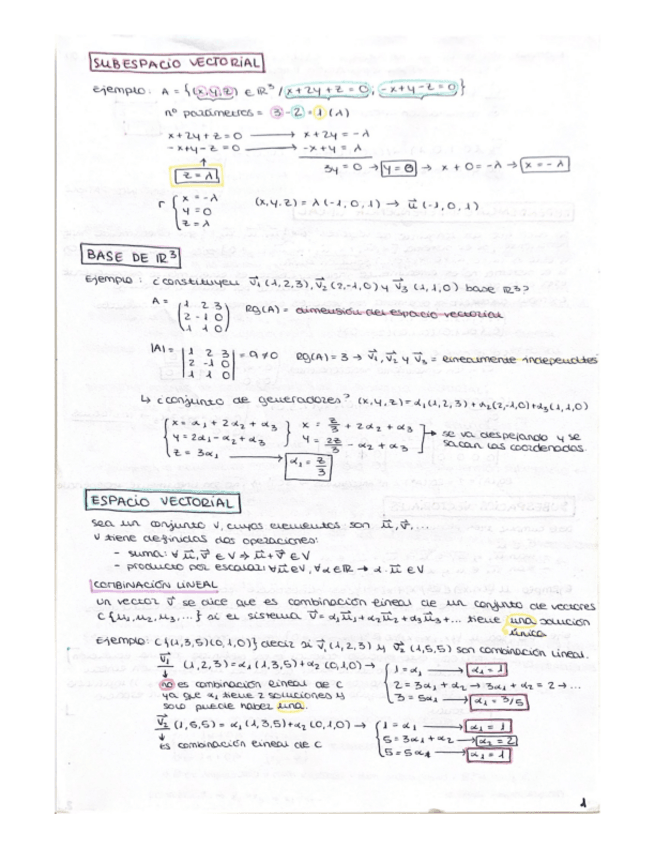 SUBESPACIO VECTORIAL
Ejemplo: A = {(x,y,z) ∈ ℝ³ / x+2y+z=0; -x+y-z=0}
nº parámetros = 3-2=1 (λ)
x+2y+z=0 → x+2y=-λ
-x+y-z=0 → -x+y=λ
z=λ
3y=0 → y=0 → x+0=-λ → x=-λ
r { x=-λ
y=0
z=λ
(x,y,z)=λ(-1,0,1) → u⃗(-1,0,1)
BASE DE ℝ³
Ejemplo: ¿constituyen v⃗₁(1,2,3), v⃗₂(2,-1,0) y v⃗₃(1,1,0) base ℝ³?
A = (1 2 3
2 -1 0
1 1 0) Rg(A) = dimensión del espacio vectorial
|A| = |1 2 3
2 -1 0
1 1 0| = 9≠0 Rg(A)=3 → v⃗₁, v⃗₂ y v⃗₃ = linealmente independientes
↳ ¿conjunto de generadores? (x,y,z)=α₁(1,2,3)+α₂(2,-1,0)+α₃(1,1,0)
{ x=α₁+2α₂+α₃
y=2α₁-α₂+α₃
z=3α₁ → α₁=z/3
x=z/3+2α₂+α₃
y=2z/3-α₂+α₃
→ se va despejando y se
sacan las coordenadas
ESPACIO VECTORIAL
Sea un conjunto V, cuyos elementos son u⃗,v⃗,...
V tiene definidas dos operaciones:
- suma: ∀ u⃗,v⃗ ∈ V ⇒ u⃗+v⃗ ∈ V
- producto por escalar: ∀u⃗∈V, ∀α∈ℝ → α·u⃗ ∈V
COMBINACIÓN LINEAL
Un vector v⃗ se dice que es combinación lineal de un conjunto de vectores
C{μ₁,μ₂,μ₃,...} si el sistema v⃗=α₁u⃗₁+α₂u⃗₂+α₃u⃗₃+... tiene una solución
única
Ejemplo: C{(1,3,5)(0,1,0)} decir si v⃗₁(1,2,3) y v⃗₂(1,5,5) son combinación lineal.
v⃗₁ (1,2,3)=α₁(1,3,5)+α₂(0,1,0) → { 1=α₁ → α₁=1
2=3α₁+α₂→3α₁+α₂=2→...
3=5α₁ → α₁=3/5
no es combinación lineal de C
ya que α₁ tiene 2 soluciones y
solo puede haber una.
v⃗₂ (1,5,5)=α₁(1,3,5)+α₂(0,1,0) → { 1=α₁ → α₁=1
5=3α₁+α₂ → α₂=2
5=5α₁ → α₁=1
es combinación lineal de C
1